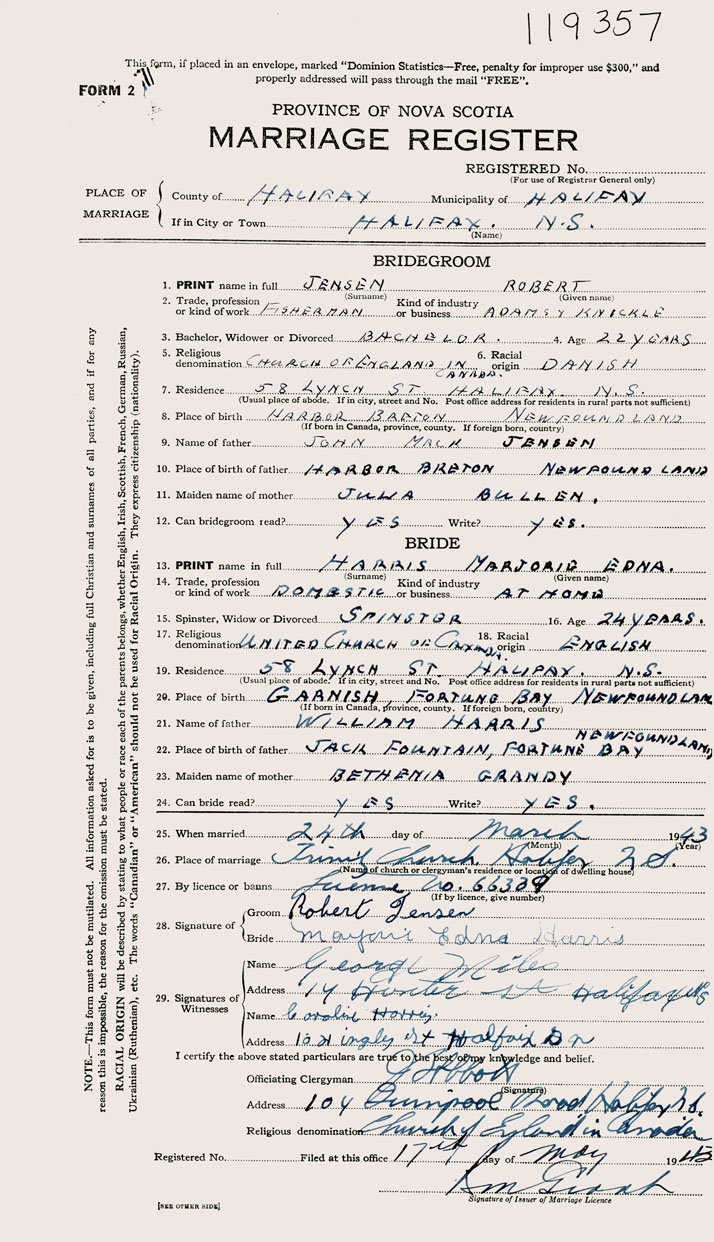 119357
This form, if placed in an envelope, marked "Dominion Statistics—Free, penalty for improper use $300," and
properly addressed will pass through the mail "FREE".
FORM 2
PROVINCE OF NOVA SCOTIA
MARRIAGE REGISTER
REGISTERED No.
(For use of Registrar General only)
PLACE OF MARRIAGE
County of HALIFAX Municipality of HALIFAX
If in City or Town HALIFAX. N.S.
(Name)
BRIDEGROOM
1. PRINT name in full JENSEN ROBERT
(Surname) (Given name)
2. Trade, profession or kind of work FISHERMAN Kind of industry or business ADAMS & KNICKLE
3. Bachelor, Widower or Divorced BACHELOR. 4. Age 22 YEARS
5. Religious denomination CHURCH OF ENGLAND IN CANADA. 6. Racial origin DANISH
7. Residence 58 LYNCH ST. HALIFAX. N.S.
(Usual place of abode. If in city, street and No. Post office address for residents in rural parts not sufficient)
8. Place of birth HARBOR BRETON NEWFOUNDLAND
(If born in Canada, province, county. If foreign born, country)
9. Name of father JOHN MACK JENSEN
10. Place of birth of father HARBOR BRETON NEWFOUNDLAND
11. Maiden name of mother JULIA BULLEN.
12. Can bridegroom read? YES Write? YES.
BRIDE
13. PRINT name in full HARRIS MARJORIE EDNA.
(Surname) (Given name)
14. Trade, profession or kind of work DOMESTIC Kind of industry or business AT HOME
15. Spinster, Widow or Divorced SPINSTER 16. Age 24 YEARS.
17. Religious denomination UNITED CHURCH OF CANADA. 18. Racial origin ENGLISH
19. Residence 58 LYNCH ST. HALIFAX. N.S.
(Usual place of abode. If in city, street and No. Post office address for residents in rural parts not sufficient)
20. Place of birth GARNISH, FORTUNE BAY NEWFOUNDLAN
(If born in Canada, province, county. If foreign born, country)
21. Name of father WILLIAM HARRIS
22. Place of birth of father JACK FOUNTAIN, FORTUNE BAY NEWFOUNDLAND
23. Maiden name of mother BETHENIA GRANDY
24. Can bride read? YES Write? YES.
25. When married 24th day of March 1943
(Month) (Year)
26. Place of marriage Trinity Church Halifax N.S.
(Name of church or clergyman's residence or location of dwelling house)
27. By licence or banns License No. 66339
(If by licence, give number)
28. Signature of
Groom Robert Jensen
Bride Marjorie Edna Harris
29. Signatures of Witnesses
Name George Miles
Address 14 Hunter St Halifax NS
Name Coralie Harris
Address St Halifax
I certify the above stated particulars are true to the best of my knowledge and belief.
Officiating Clergyman Abbott
(Signature)
Address 104 Road Halifax N.S.
Religious denomination Church of England in Canada
Registered No. Filed at this office 17th day of May 1943
Grant
Signature of Issuer of Marriage Licence
[SEE OTHER SIDE]
NOTE.—This form must not be mutilated. All information asked for is to be given, including full Christian and surnames of all parties, and if for any
reason this is impossible, the reason for the omission must be stated.
RACIAL ORIGIN will be described by stating to what people or race each of the parents belongs, whether English, Irish, Scottish, French, German, Russian,
Ukrainian (Ruthenian), etc. The words "Canadian" or "American" should not be used for Racial Origin. They express citizenship (nationality).